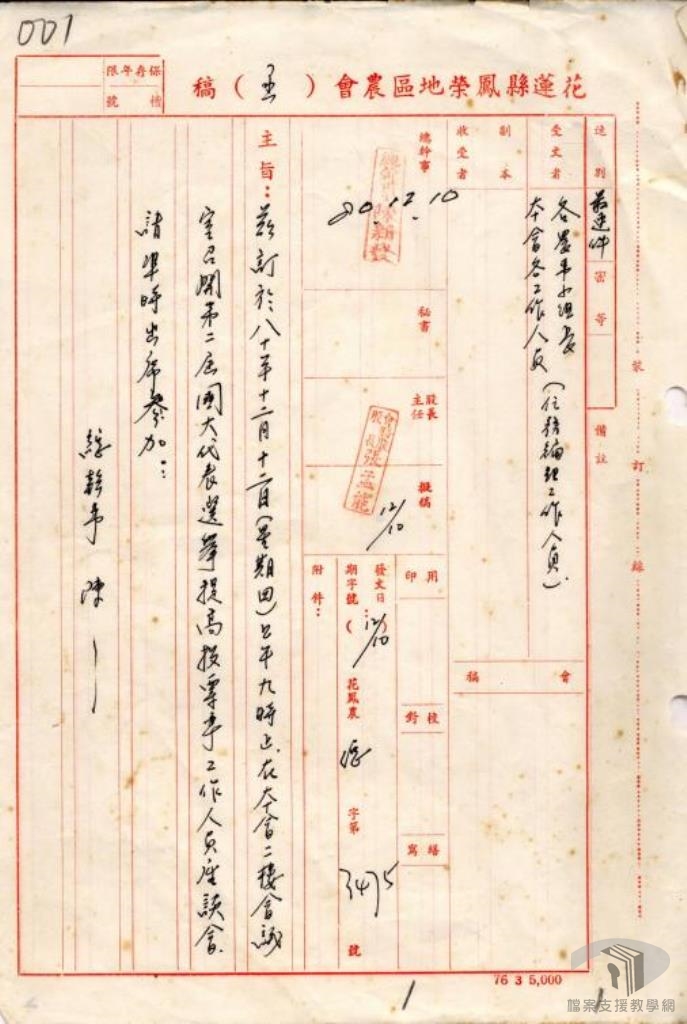 001
花蓮縣鳳榮地區農會（ ）稿
保存年限
檔號
速別
最速件
密等
備註
受文者
各農事小組長
本會各工作人員（任務編組工作人員）
副本
收受者
會稿
總幹事
80.12.10
秘書
股長
主任
張孟龍
擬稿
12/10
用印
校對
繕寫
發文日期字號：
12/10
（花鳳農 總 字第 3475 號
附件：
主旨：茲訂於八十年十二月十二日（星期四）上午九時正在本會二樓會議
室召開第二屆國大代表選舉提高投票率工作人員座談會
請準時出席參加：
總幹事 陳
裝
訂
線
76 3 5,000
1
1
檔案支援教學網